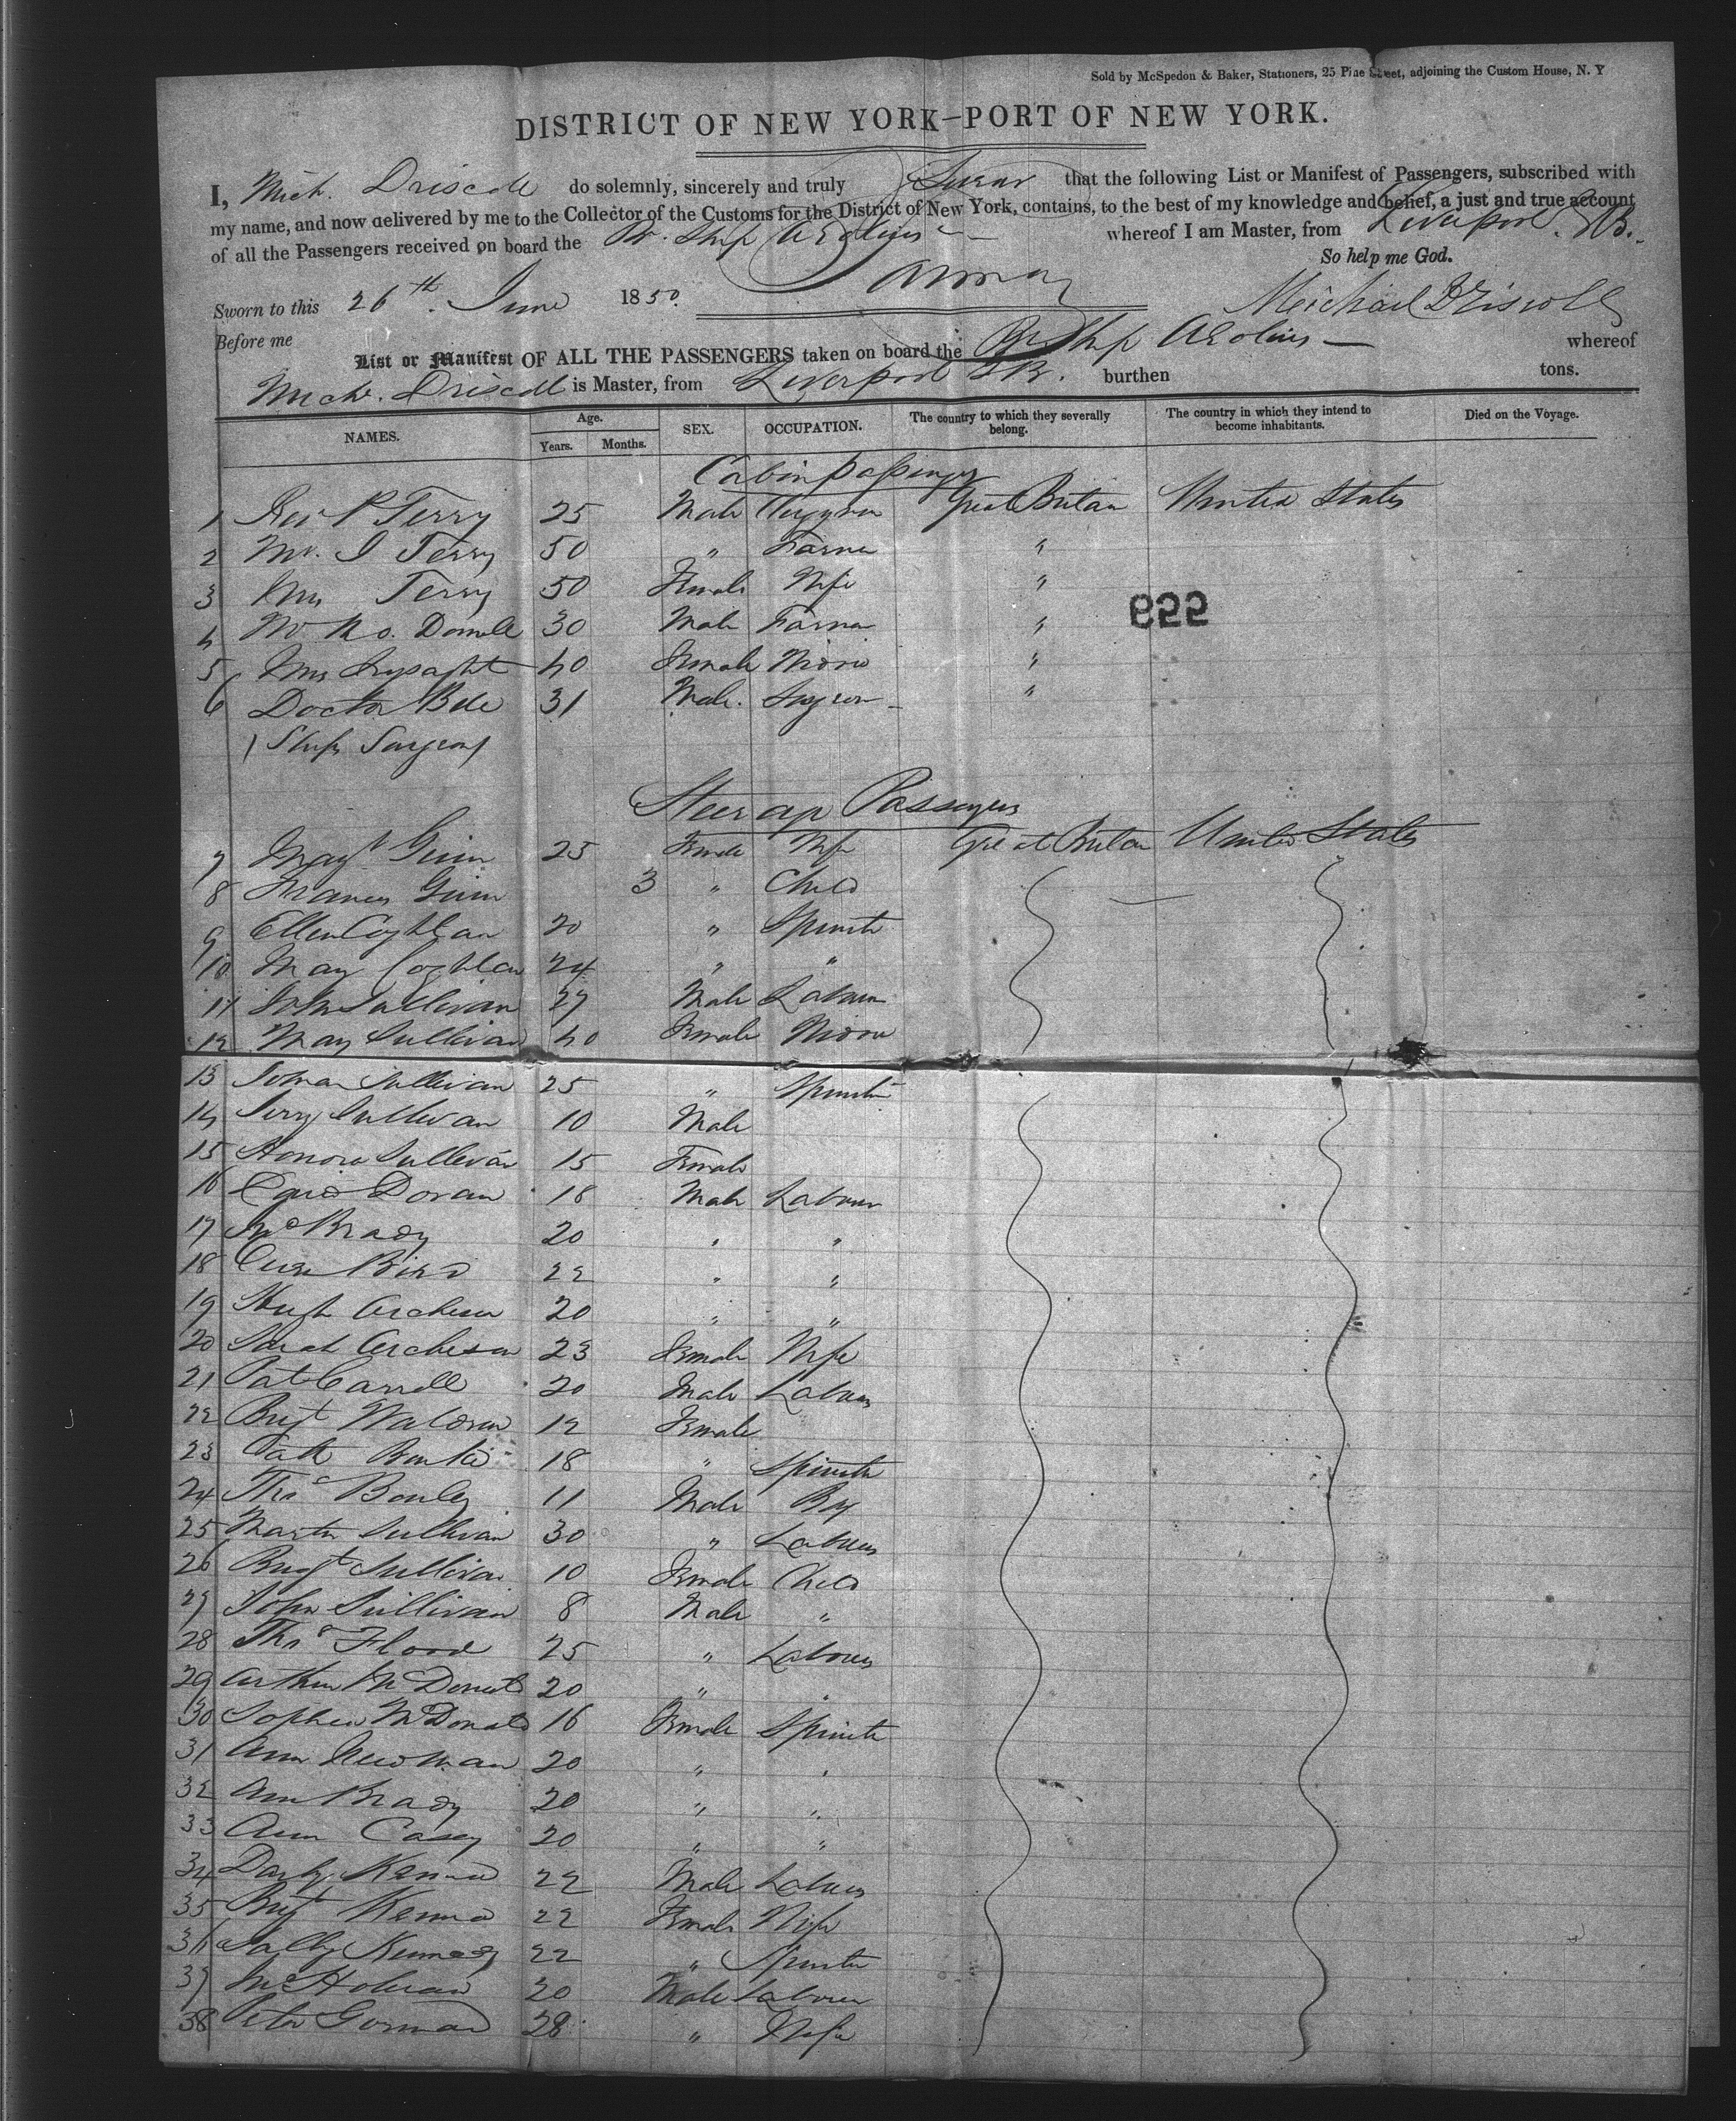 Sold by McSpedon & Baker, Stationers, 25 Pine Street, adjoining the Custom House, N. Y
DISTRICT OF NEW YORK–PORT OF NEW YORK.
I, Mich. Driscoll do solemnly, sincerely and truly Swear that the following List or Manifest of Passengers, subscribed with
my name, and now delivered by me to the Collector of the Customs for the District of New York, contains, to the best of my knowledge and belief, a just and true account
of all the Passengers received on board the Br. Ship Aeolus whereof I am Master, from Liverpool. GB.
So help me God.
Sworn to this 26th. June 1850. Michael Driscoll
Before me
List or Manifest OF ALL THE PASSENGERS taken on board the Br Ship Aeolus whereof
Mich. Driscoll is Master, from Liverpool GB. burthen tons.
NAMES. Age. Years. Months. SEX. OCCUPATION. The country to which they severally belong. The country in which they intend to become inhabitants. Died on the Voyage.
Cabin passengers
1 Rev P Terry 25 Male Clergyman Great Britain United States
2 Mr. I Terry 50 " Farmer "
3 Mrs Terry 50 Female Wife "
4 30 Male Farmer "
5 Mrs Lysaght 40 Female "
6 Doctor 31 Male. Surgeon "
(Ships Surgeon)
929
Steerage Passengers
7 Margt 25 Female Wife Great Britain United States
8 Frances 3 " Child
9 Ellen Coghlan 20 " Spinster
10 Mary Coghlan 24 " "
11 John Sullivan 27 Male Labourer
12 Mary Sullivan 40 Female
13 Sullivan 25 " Spinster
14 Jerry Sullivan 10 Male
15 Honora Sullivan 15 Female
16 Doran 18 Male Labourer
17 Brady 20 " "
18 Bird 22 " "
19 Hugh Acheson 20 " "
20 Sarah Acheson 23 Female Wife
21 Pat Carroll 20 Male Labourer
22 Brigt Waldron 12 Female
23 Cath Burke 18 " Spinster
24 Thos 11 Male Boy
25 Martin Sullivan 30 " Labourer
26 Brigt Sullivan 10 Female Child
27 John Sullivan 8 Male "
28 Thos Flood 25 " Labourer
29 Arthur McDonald 20 " "
30 Sophia McDonald 16 Female Spinster
31 Ann Newman 20 " "
32 Ann Brady 20 " "
33 Ann Casey 20 " "
34 Darby Kenna 22 Male Labourer
35 Brigt Kenna 22 Female Wife
36 Kennedy 22 " Spinster
37 20 Male Labourer
38 Peter Gorman 28 " Wife